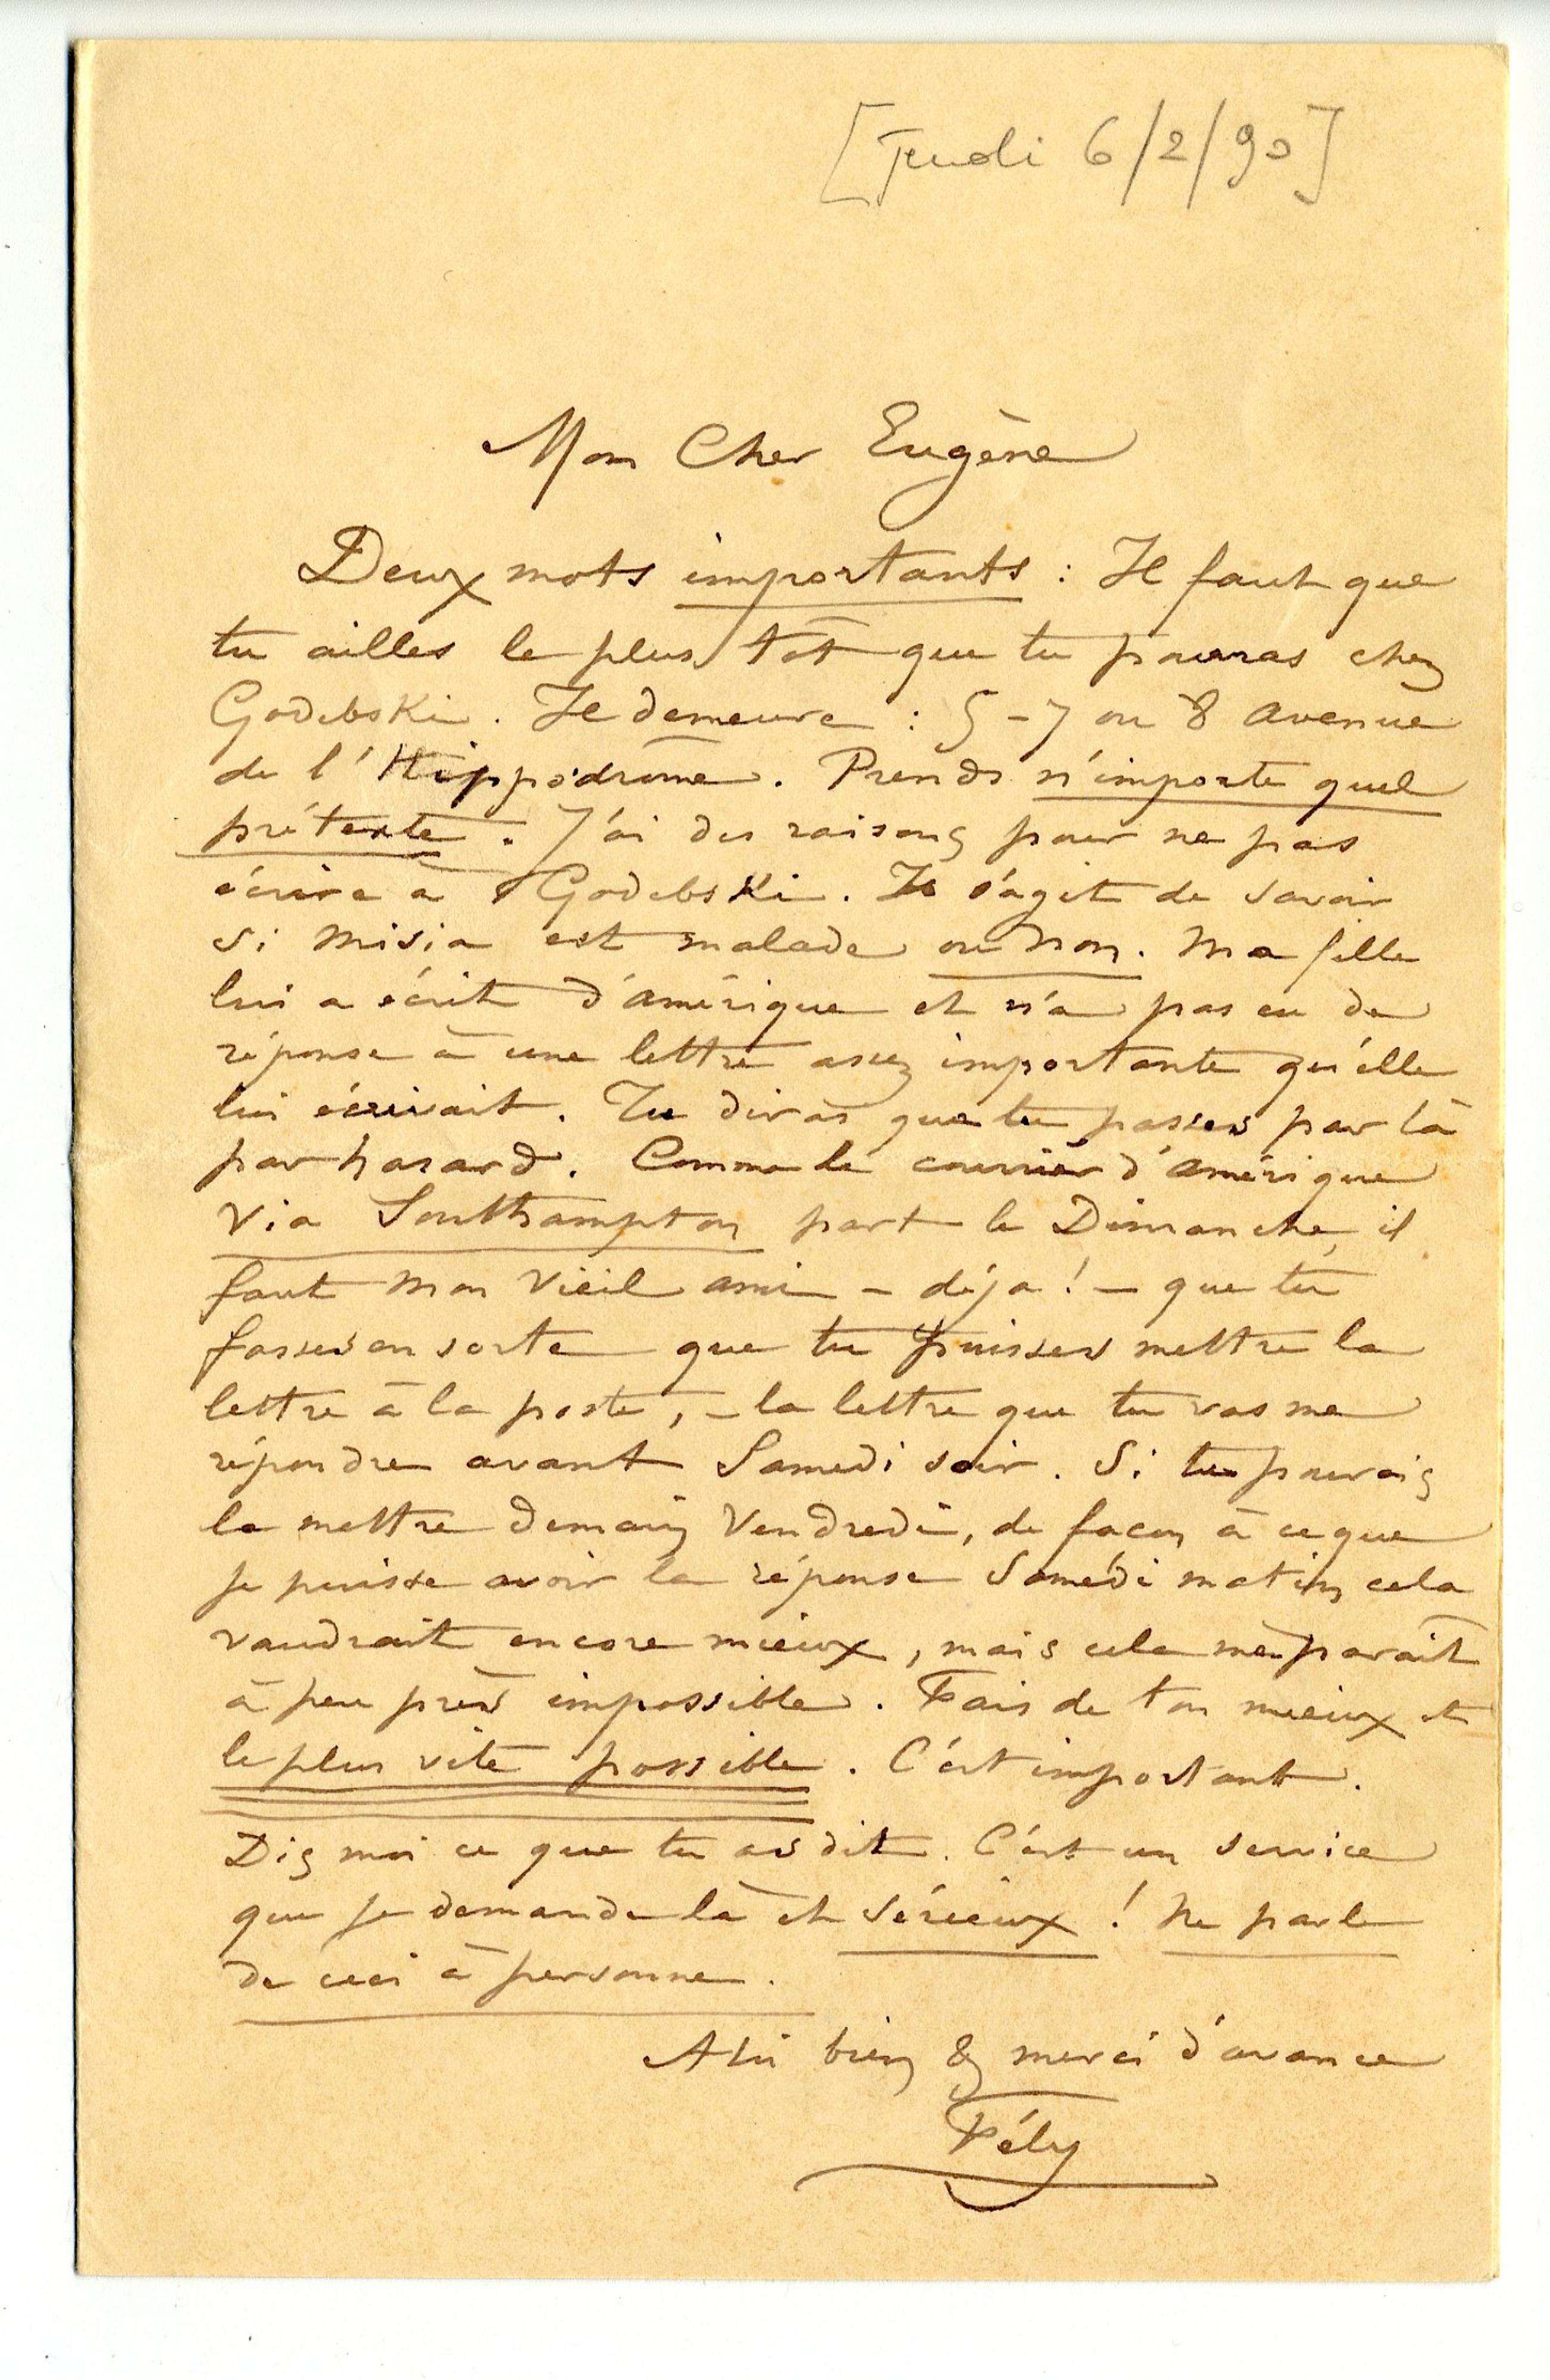 [Jeudi 6/2/90]
Mon Cher Eugène
Deux mots importants : Il faut que
tu ailles le plus tôt que tu pourras chez
Godebski. Il demeure : 5-7 ou 8 avenue
de l'Hippodrome. Prends n'importe quel
prétexte. J'ai des raisons pour ne pas
écrire à Godebski. Il s'agit de savoir
si Misia est malade ou non. Ma fille
lui a écrit d'Amérique et n'a pas eu de
réponse à une lettre assez importante qu'elle
lui écrivait. Tu diras que tu passes par là
par hasard. Comme le courrier d'Amérique
via Southampton part le Dimanche, il
faut mon vieil ami – déja ! – que tu
fasses en sorte que tu puisses mettre la
lettre à la poste, – la lettre que tu vas me
répondre avant Samedi soir. Si tu pouvais
la mettre demain Vendredi, de façon à ce que
je puisse avoir la réponse Samedi matin cela
vaudrait encore mieux, mais cela me paraît
à peu près impossible. Fais de ton mieux et
le plus vite possible. C'est important.
Dis moi ce que tu as dit. C'est un service
que je demande là et sérieux ! Ne parle
de ceci à personne.
A toi bien & merci d'avance
Fély